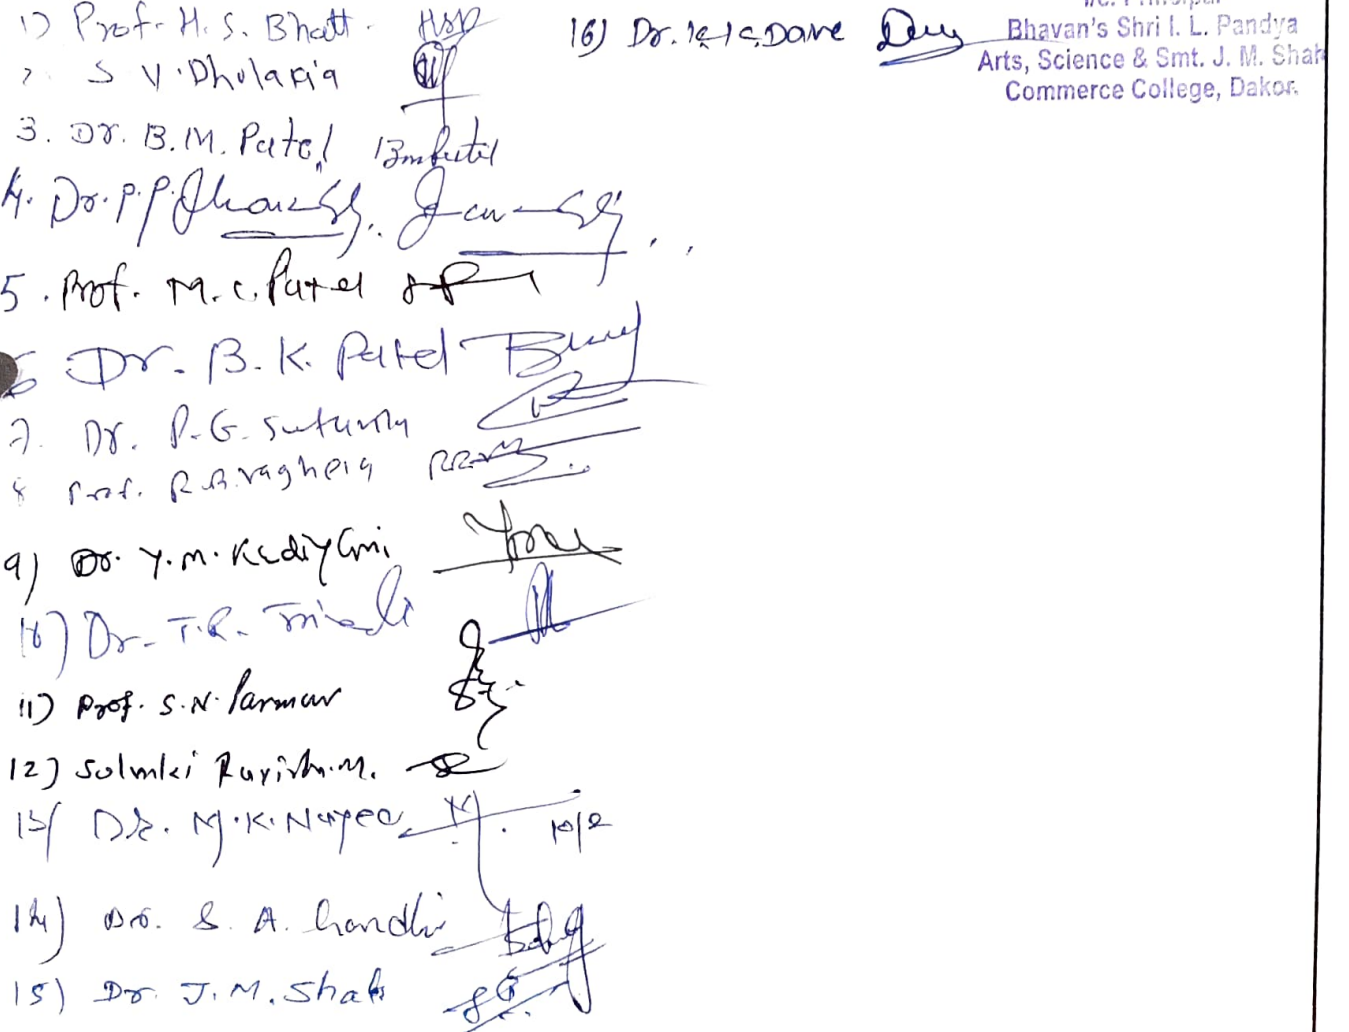 1) Prof. H. S. Bhatt. HSB
2. S V. Dholaria
3. Dr. B.M. Patel Bmpatel
4. Dr. P.P.
5. Prof. M.C. Patel
6 Dr. B.K. Patel
7. Dr. P.G. Sutariya
8 Prof. R.B. Vaghela
9) Dr. Y.M.
10) Dr. T.R. Trivedi
11) Prof. S.N. Parmar
12) Solanki M.
13) Dr. M.K. Nayee 10/2
14) Dr. S. A. Gandhi
15) Dr. J.M. Shah
16) Dr. K.K. Dave
I/C. Principal
Bhavan's Shri I. L. Pandya
Arts, Science & Smt. J. M. Shah
Commerce College, Dakor.